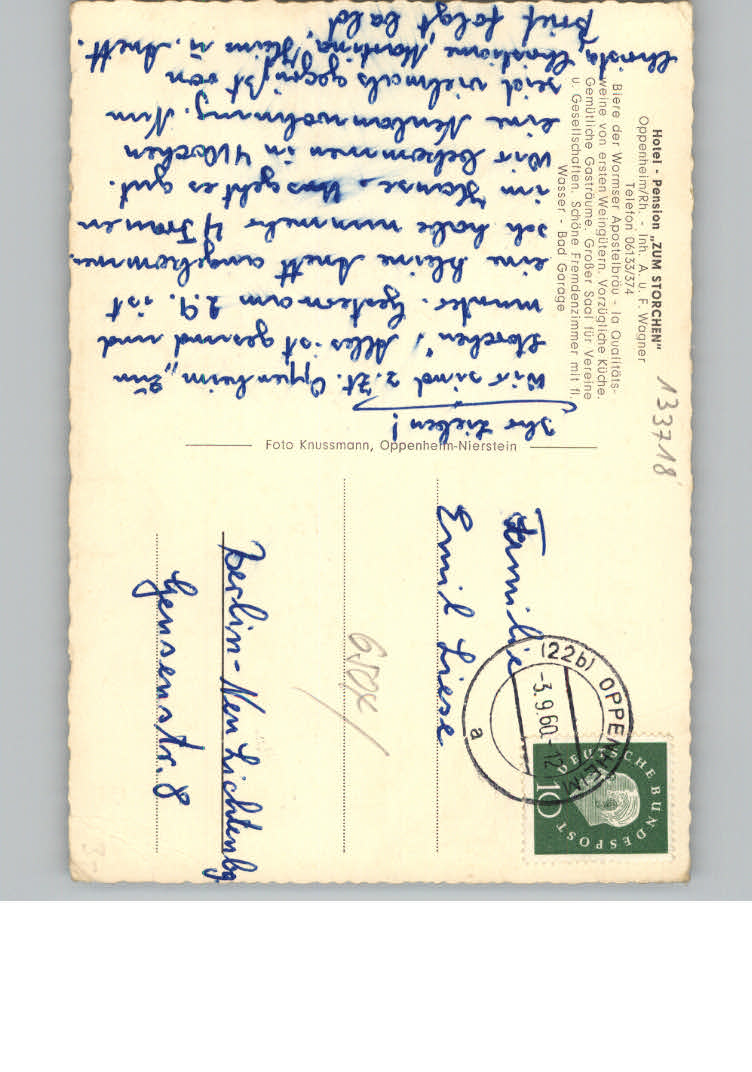 Hotel - Pension „ZUM STORCHEN"
Oppenheim/Rh. - Inh. A. u. F. Wagner
Telefon 06133/374
Biere der Wormser Apostelbräu - la Qualitäts-
weine von ersten Weingütern. Vorzügliche Küche.
Gemütliche Gasträume. Großer Saal für Vereine
u. Gesellschaften. Schöne Fremdenzimmer mit fl.
Wasser - Bad Garage
133718
Ihr Lieben!
Wir sind z.Zt. Oppenheim „Zum
Storchen", Alles ist gesund und
munter. Gestern am 2.9. ist
eine kleine Anett angekommen.
Ich habe nunmehr 4 Frauen
im Hause. Uns geht es gut.
Wir bekommen in 4 Wochen
eine Neubauwohnung. Nun
seid vielmals gegrüßt von
Christa, Martina, Heinz u. Anett.
Brief folgt bald
Foto Knussmann, Oppenheim-Nierstein
Familie
Emil Liese
Berlin-Neu Lichtenbg
Gensenstr. 8
(22b) OPPENHEIM
-3.9.60.-12
a
DEUTSCHE BUNDESPOST
10